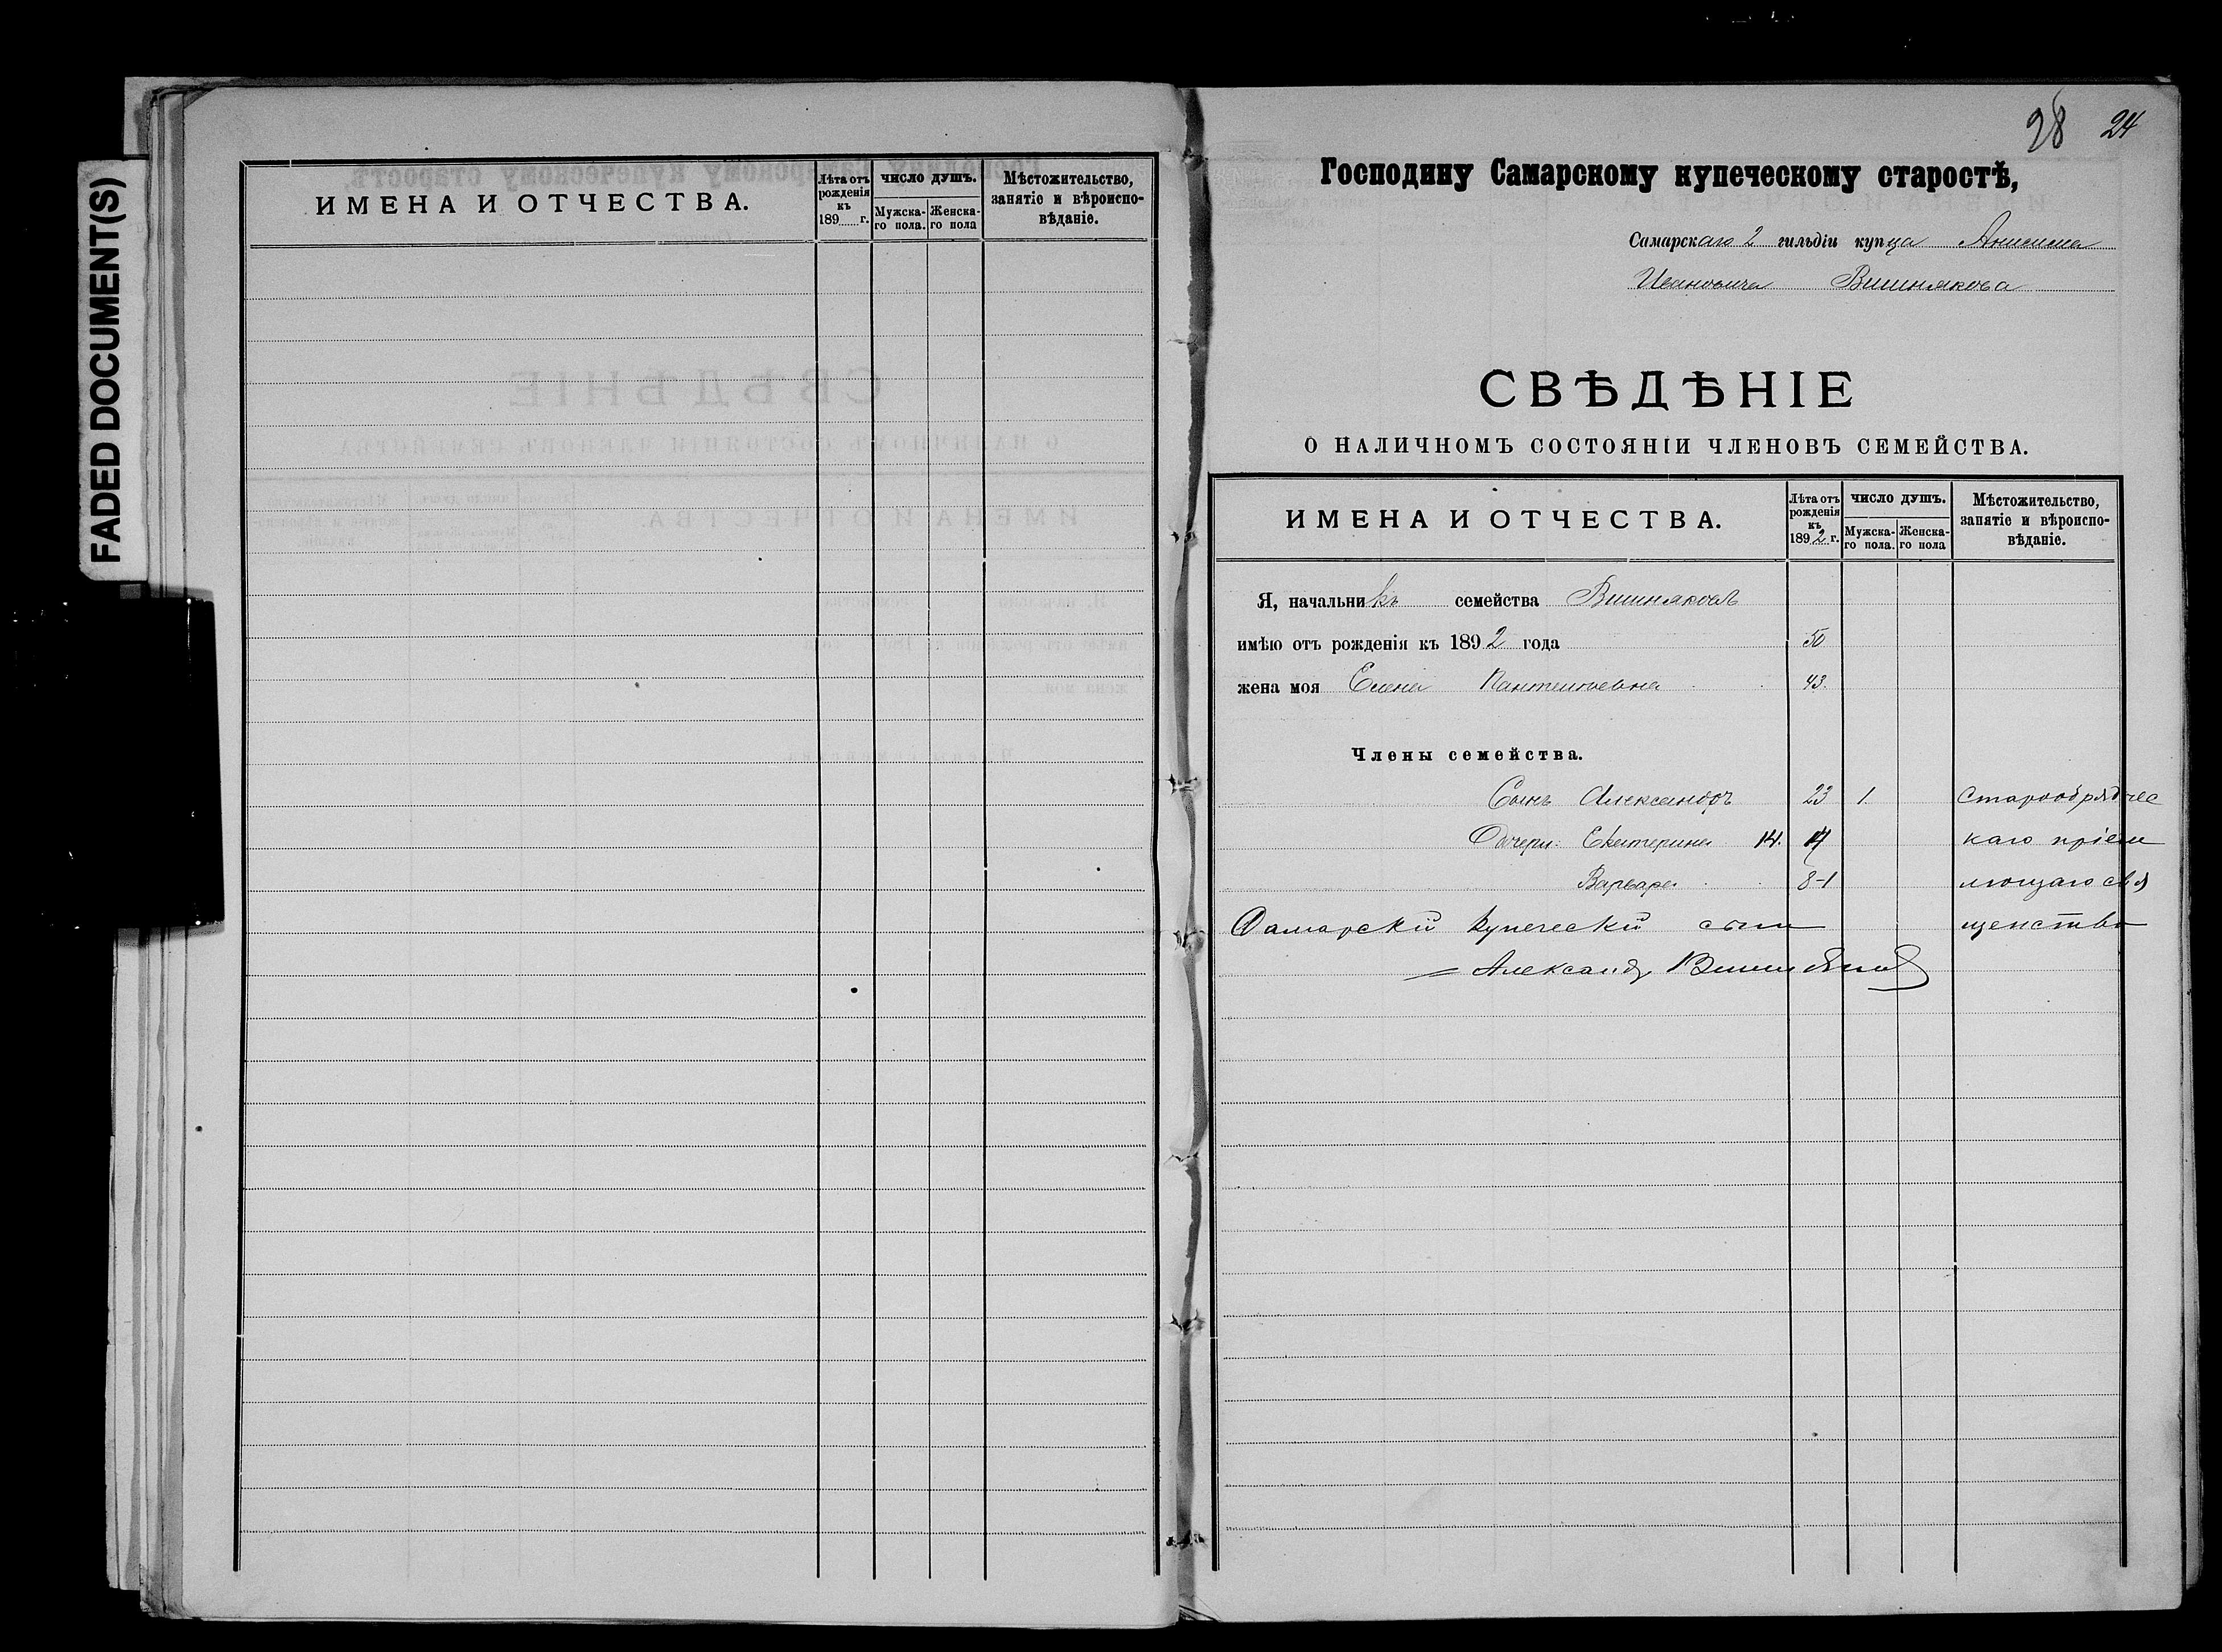 FADED DOCUMENT(S)
ИМЕНА И ОТЧЕСТВА.
Лѣта отъ рожденія къ 189 г.
ЧИСЛО ДУШЪ.
Мужска-го пола.
Женска-го пола
Мѣстожительство, занятіе и вѣроиспо-вѣданіе.
28 24
Господину Самарскому купеческому старостѣ,
Самарскаго 2 гильдіи купца Анисима
Ивановича Вишнякова
СВѢДѢНІЕ
О НАЛИЧНОМЪ СОСТОЯНІИ ЧЛЕНОВЪ СЕМЕЙСТВА.
ИМЕНА И ОТЧЕСТВА.
Лѣта отъ рожденія къ 1892 г.
ЧИСЛО ДУШЪ.
Мужска-го пола.
Женска-го пола
Мѣстожительство, занятіе и вѣроиспо-вѣданіе.
Я, начальникъ семейства Вишняковъ
имѣю отъ рожденія къ 1892 года 50
жена моя Елена Пантелѣевна 43.
Члены семейства.
Сынъ Александръ 23 1. Старообрядчес
Дочери: Екатерина 14. 14 каго пріем
Варвара 8-1 лющаго свя
Самарскій купеческій сынъ щенство
Александръ Вишняковъ